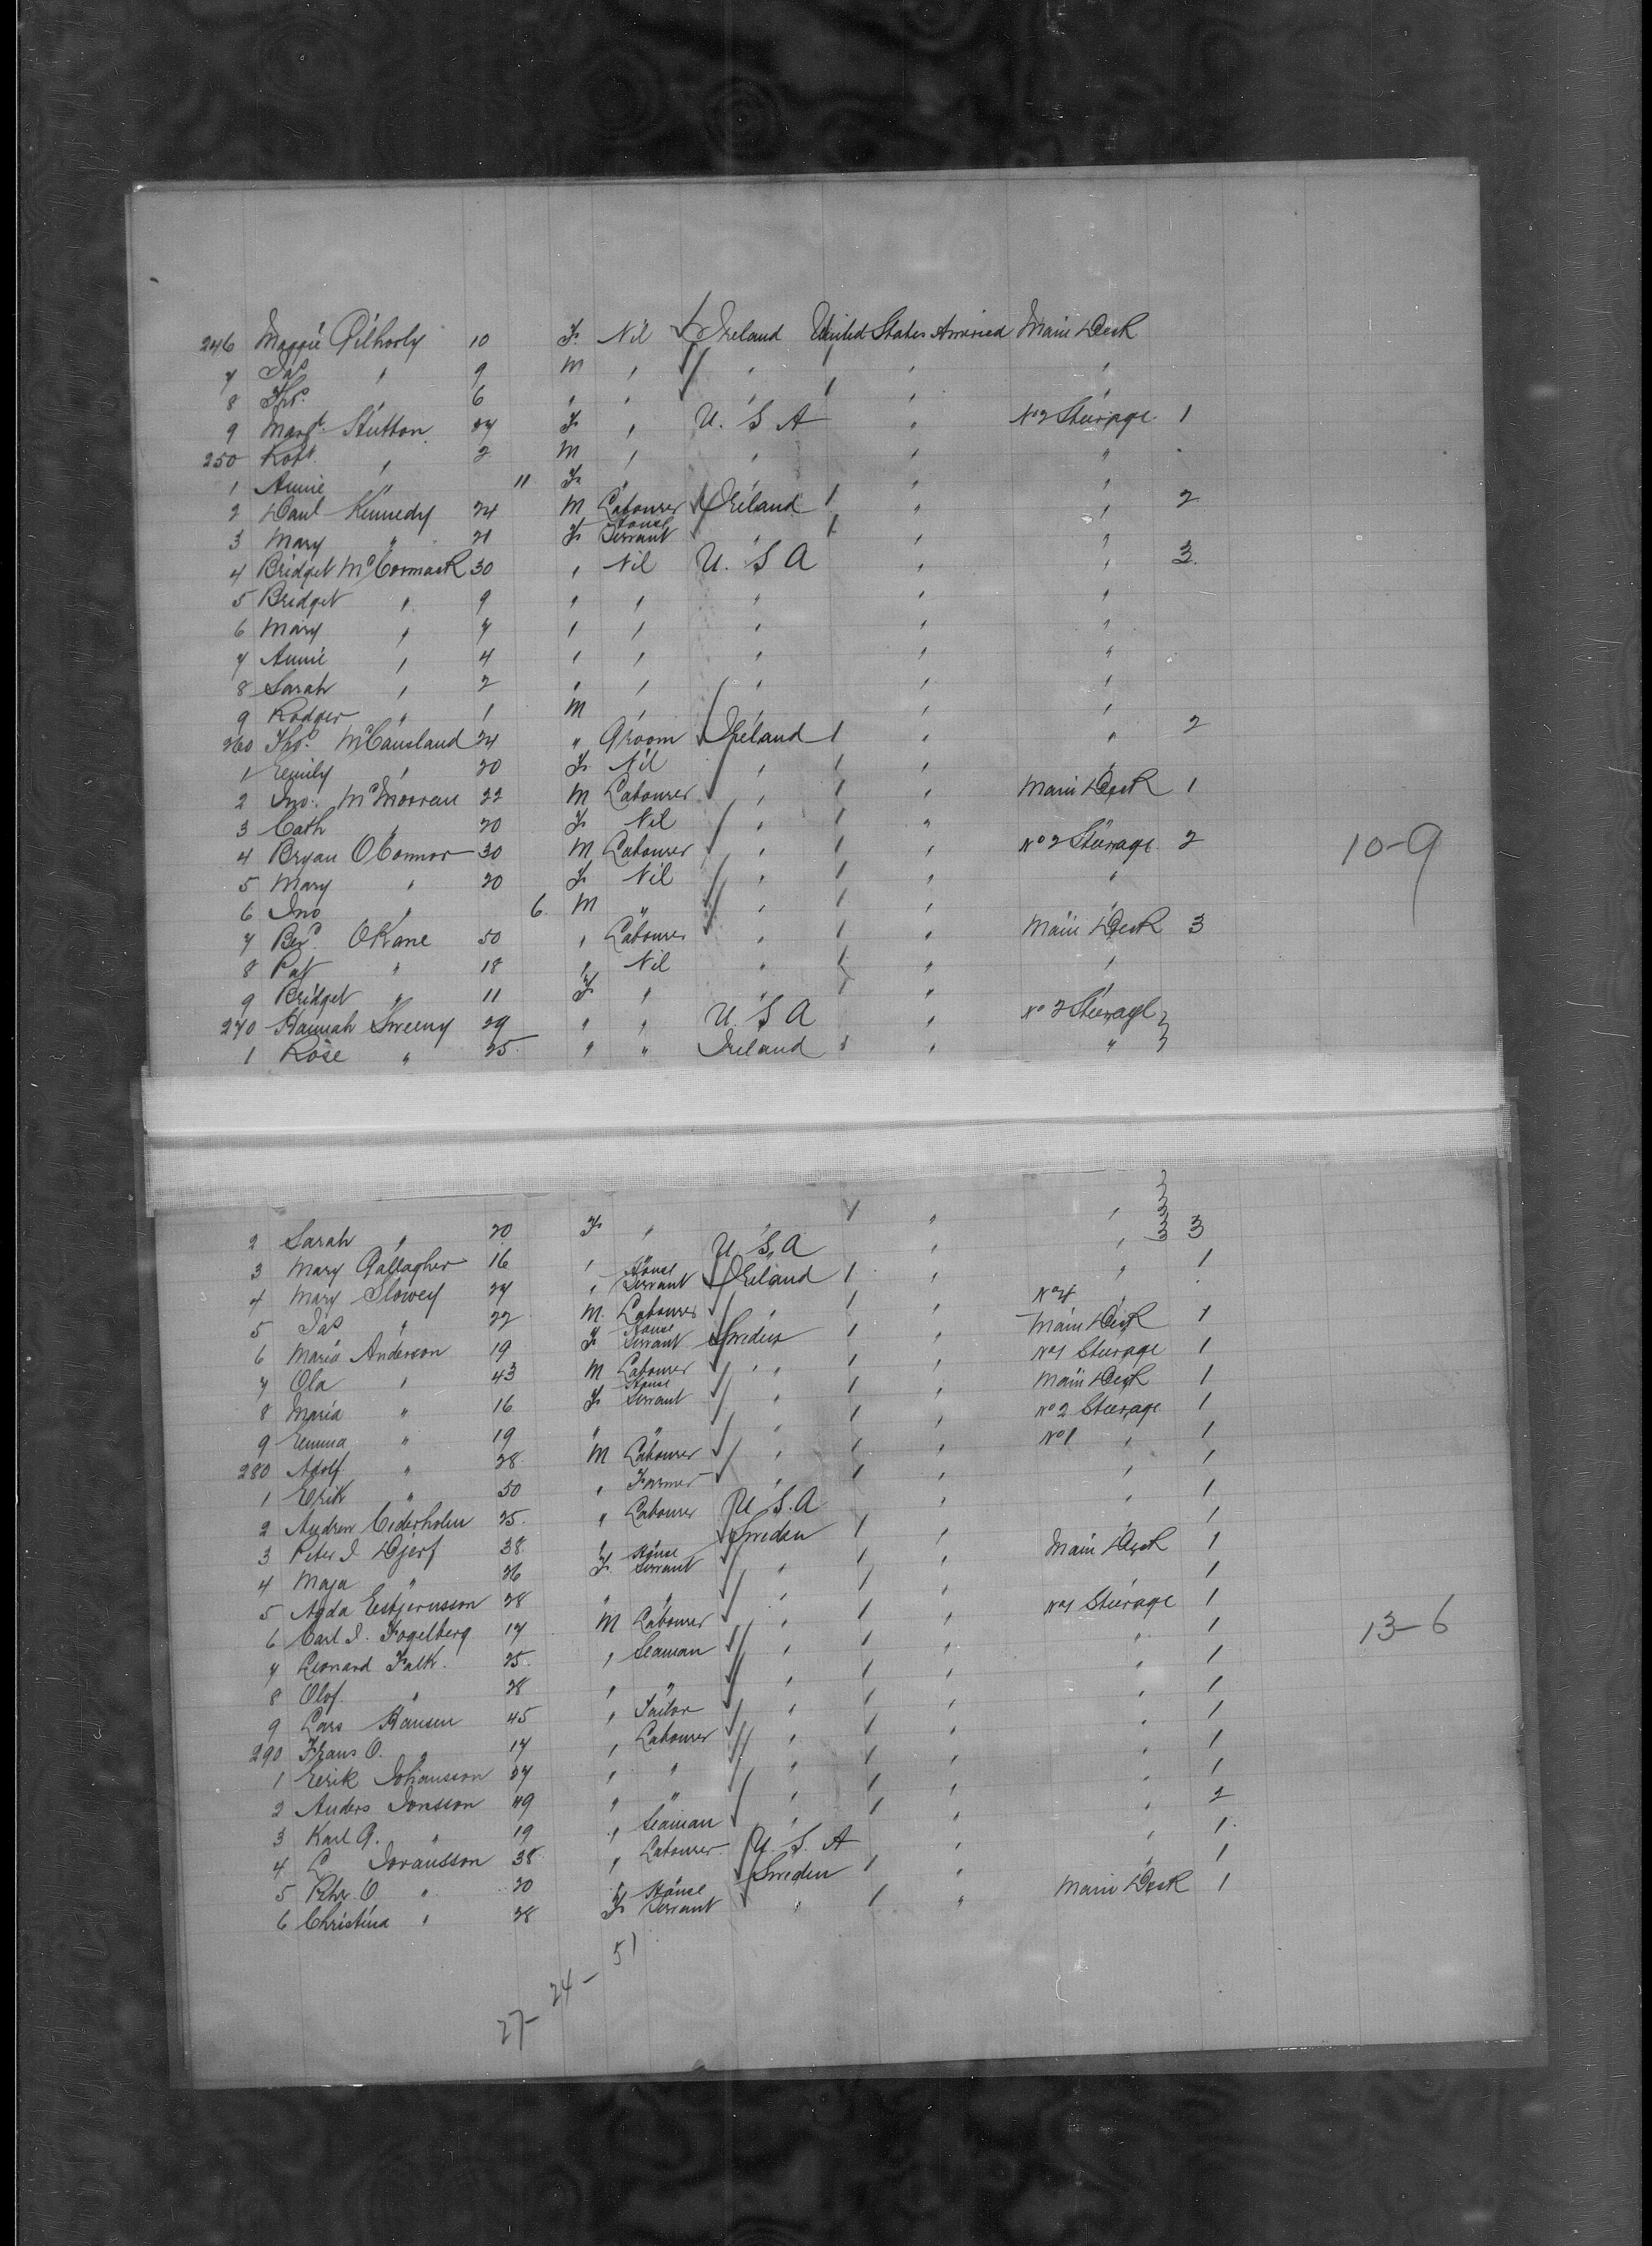 246 Maggie Gilhooly 10 F Nil Ireland United States America Main Deck
7 Jas " 9 M " " " "
8 Thos. " 6 " " " " "
9 Margt. Hutton 27 F " U.S.A " No 2 Steerage 1
250 Robt. " 2 M " " " "
1 Annie " 11 F " " " "
2 Danl Kennedy 24 M Labourer Ireland 1 " " 2
3 Mary " 21 F House Servant " 1 " "
4 Bridget McCormack 30 " Nil U.S.A " " 3
5 Bridget " 9 " " " " "
6 Mary " 7 " " " " "
7 Annie " 4 " " " " "
8 Sarah " 2 " " " " "
9 Rodger " 1 M " " " "
260 Thos. McCausland 24 " Groom Ireland 1 " " 2
1 Emily " 20 F Nil " 1 " "
2 Jno. McMorrow 22 M Labourer " 1 " Main Deck 1
3 Cath " 20 F Nil " 1 "
4 Bryan OConnor 30 M Labourer " 1 " No 2 Steerage 2
5 Mary " 20 F Nil " 1 " "
6 Jno " 6 M " " 1 " "
10-9
7 OKane 50 " Labourer " 1 " Main Deck 3
8 Pat " 18 " Nil " 1 " "
9 Bridget " 11 F " " 1 " "
270 Hannah Sweeny 29 " " U.S.A " No 2 Steerage
1 Rose " 25 " " Ireland 1 " "
2 Sarah " 20 F " " 1 " " 3
3 Mary Gallagher 16 " " U.S.A " " 1
4 Mary Slowey 27 " House Servant Ireland 1 " No 4 "
5 Jas " 22 M. Labourer " 1 " Main Deck 1
6 Maria Anderson 19 F House Servant Sweden 1 " No 1 Steerage 1
7 Ola " 43 M Labourer " 1 " Main Deck 1
8 Maria " 16 F House Servant " 1 " No 2 Steerage 1
9 Emma " 19 " " " 1 " No 1 " 1
280 Adolf " 28 M Labourer " 1 " " 1
1 Erik " 50 " Farmer " 1 " " 1
2 Andrew Cederholm 25 " Labourer U.S.A " " 1
3 Peter J Djerf 38 " " Sweden 1 " Main Deck 1
4 Maja " 26 F House Servant " 1 " " 1
5 Agda Esbjornsson 28 " " " 1 " No 1 Steerage 1
6 Carl J. Fogelberg 17 M Labourer " 1 " " 1
13-6
7 Leonard Falk 25 " Seaman " 1 " " 1
8 Olof " 28 " " " 1 " " 1
9 Lars Hansen 45 " Tailor " 1 " " 1
290 Frans O. " 17 " Labourer " 1 " " 1
1 Eerik Johansson 27 " " " 1 " " 1
2 Anders Jonsson 49 " " " 1 " " 2
3 Karl G. " 19 " Seaman " 1 " " 1
4 L Joransson 38 " Labourer U.S.A " " 1
5 Petr O. " 20 " " Sweden 1 "
6 Christina " 28 F House Servant " 1 " Main Deck 1
27- 24- 51